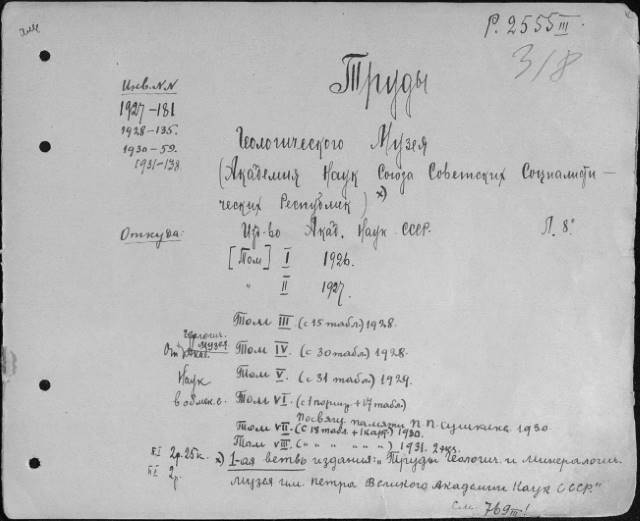 P. 2555 III
318
Труды
Инв. N.N
1927-181
1928-135.
1930-59.
1931-138
Геологического Музея
(Академия Наук Союза Советских Социалисти-
ческих Республик) x)
Откуда: Изд-во Акад. Наук СССР. Л. 8°
[Том] I 1926.
" II 1927.
Том III (с 15 табл.) 1928.
Геологич. Музея
От Акад. Том IV. (с 30 табл.) 1928.
Наук Том V. (с 31 табл.) 1929.
в обмен. Том VI. (с 1 портр. + 17 табл.)
Посвящ. памяти П.П. Сушкина 1930
Том VII. (с 18 табл. + 1 карт.) 1930.
Том VIII. (" " " " " ) 1931. 2 экз.
I 2р. 25к. x) 1-ая ветвь издания: "Труды Геологич. и минералогич.
II 2р. музея им. Петра Великого Академии Наук СССР."
См. 769 III!